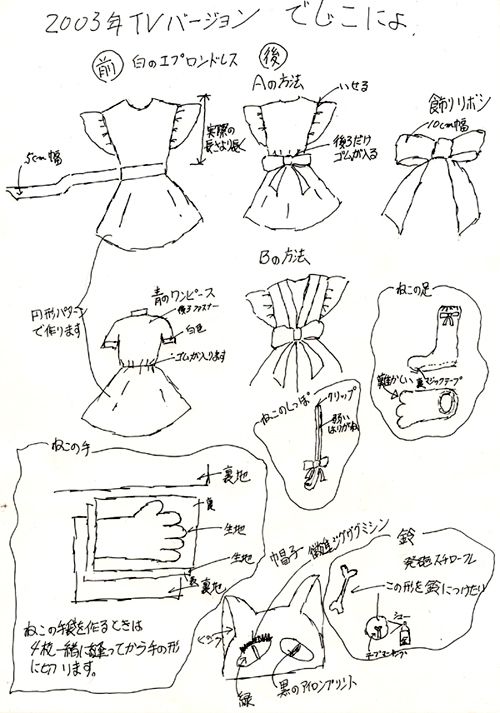 2003年TVバージョン でじこにょ.
前 白のエプロンドレス
後
Aの方法
いせる
飾りリボン
10cm幅
5cm幅
実際の
長さより長く
後ろだけ
ゴムが入る
Bの方法
円形パターン
で作ります
青のワンピース
後ろファスナー
白色
ゴムが入ります
ねこの足
難かしい
裏マジックテープ
ねこのしっぽ
クリップ
弱い
はりがね
ねこの手
裏地
裏
生地
生地
裏
裏地
ねこの手袋を作るときは
4枚一緒に縫ってから手の形
に切ります。
帽子
ジグザグミシン
緑
黒のアイロンプリント
鈴
発泡スチロール
この形を鈴につけたり